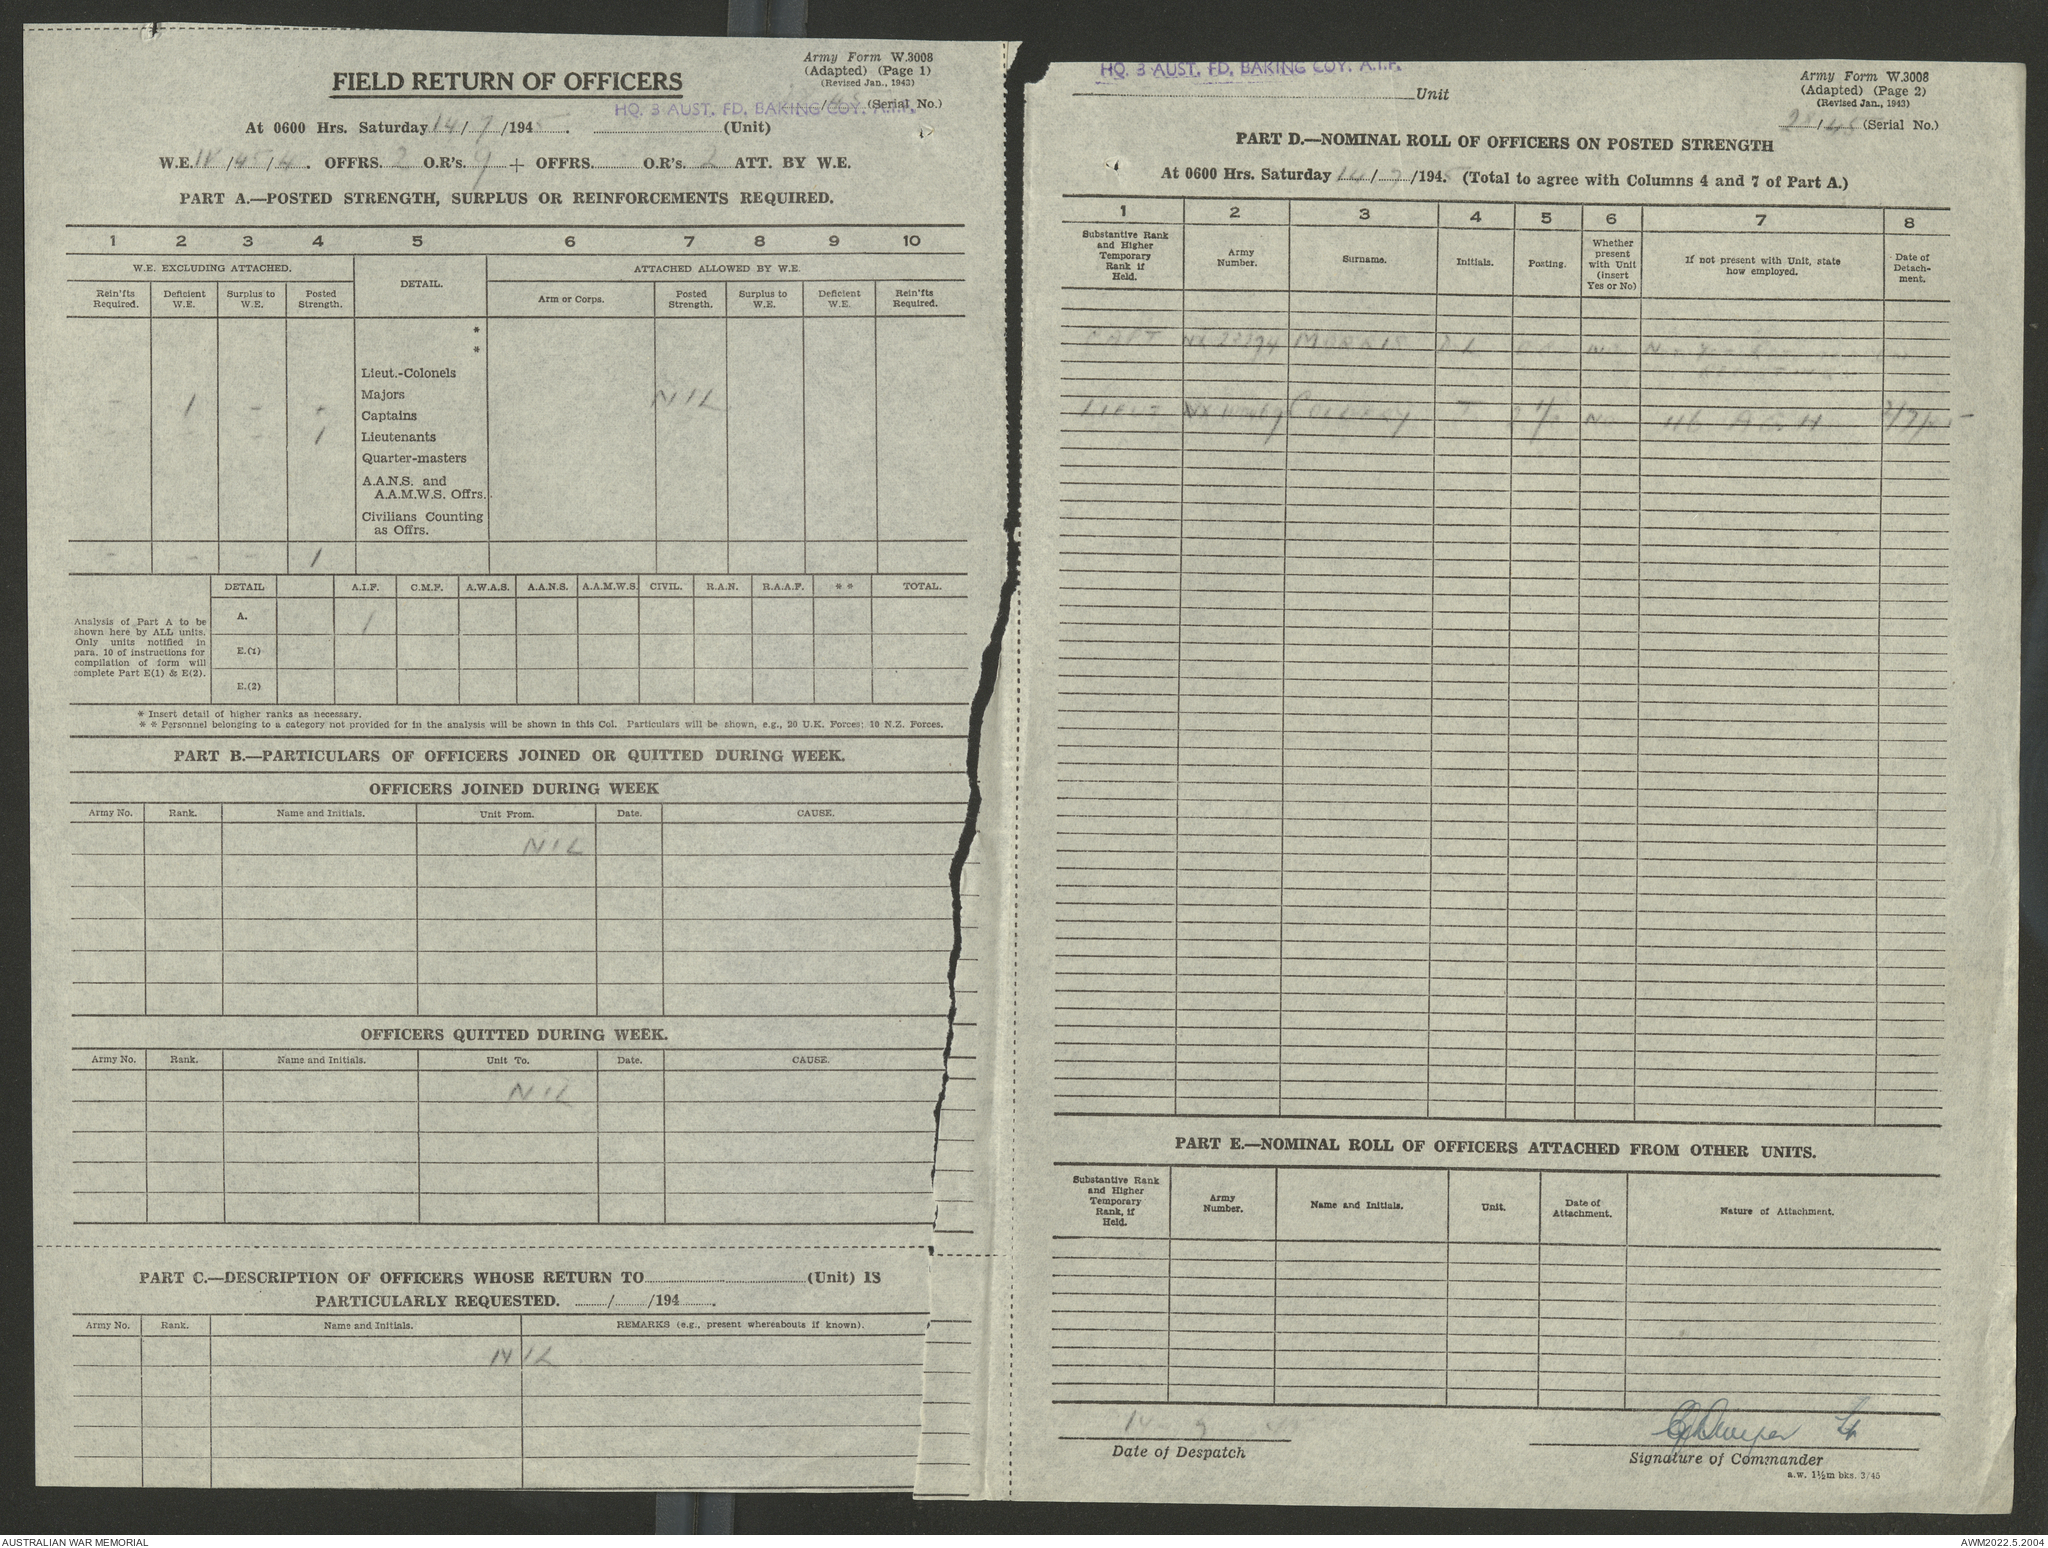 Army Form W.3008
FIELD RETURN OF OFFICERS
(Adapted) (Page 1)
(Revised Jan., 1943)
HQ. 3 AUST. FD. BAKING COY. A.I.F.
/45 (Serial No.)
At 0600 Hrs. Saturday 14/7/1945. (Unit)
W.E. /45/4. OFFRS. 2 O.R's. 9 + OFFRS. O.R's. 2 ATT. BY W.E.
PART A.—POSTED STRENGTH, SURPLUS OR REINFORCEMENTS REQUIRED.
1 2 3 4 5 6 7 8 9 10
W.E. EXCLUDING ATTACHED. DETAIL. ATTACHED ALLOWED BY W.E.
Rein'fts Required. Deficient W.E. Surplus to W.E. Posted Strength. Arm or Corps. Posted Strength. Surplus to W.E. Deficient W.E. Rein'fts Required.
*
*
Lieut.-Colonels
Majors NIL
- 1 - - Captains
1 Lieutenants
Quarter-masters
A.A.N.S. and
A.A.M.W.S. Offrs.
Civilians Counting
as Offrs.
- - - 1
DETAIL A.I.F. C.M.F. A.W.A.S. A.A.N.S. A.A.M.W.S. CIVIL. R.A.N. R.A.A.F. * * TOTAL.
Analysis of Part A to be
shown here by ALL units.
Only units notified in
para. 10 of instructions for
compilation of form will
complete Part E(1) & E(2).
A. 1
E.(1)
E.(2)
* Insert detail of higher ranks as necessary.
* * Personnel belonging to a category not provided for in the analysis will be shown in this Col. Particulars will be shown, e.g., 20 U.K. Forces; 10 N.Z. Forces.
PART B.—PARTICULARS OF OFFICERS JOINED OR QUITTED DURING WEEK.
OFFICERS JOINED DURING WEEK
Army No. Rank. Name and Initials. Unit From. Date. CAUSE.
NIL
OFFICERS QUITTED DURING WEEK.
Army No. Rank. Name and Initials. Unit To. Date. CAUSE.
NIL
PART C.—DESCRIPTION OF OFFICERS WHOSE RETURN TO (Unit) IS
PARTICULARLY REQUESTED. / /194 .
Army No. Rank. Name and Initials. REMARKS (e.g., present whereabouts if known).
NIL
HQ. 3 AUST. FD. BAKING COY. A.I.F.
Unit
Army Form W.3008
(Adapted) (Page 2)
(Revised Jan., 1943)
28/45 (Serial No.)
PART D.—NOMINAL ROLL OF OFFICERS ON POSTED STRENGTH
At 0600 Hrs. Saturday 14/7/1945 (Total to agree with Columns 4 and 7 of Part A.)
1 2 3 4 5 6 7 8
Substantive Rank and Higher Temporary Rank if Held. Army Number. Surname. Initials. Posting. Whether present with Unit (insert Yes or No) If not present with Unit, state how employed. Date of Detach-ment.
CAPT MORRIS
LIEUT T NO 116 A.G.H. 7/7/45
PART E.—NOMINAL ROLL OF OFFICERS ATTACHED FROM OTHER UNITS.
Substantive Rank and Higher Temporary Rank, if Held. Army Number. Name and Initials. Unit. Date of Attachment. Nature of Attachment.
14 7 45
Date of Despatch
Lt
Signature of Commander
a.w. 1½m bks. 3/45
AUSTRALIAN WAR MEMORIAL
AWM2022.5.2004